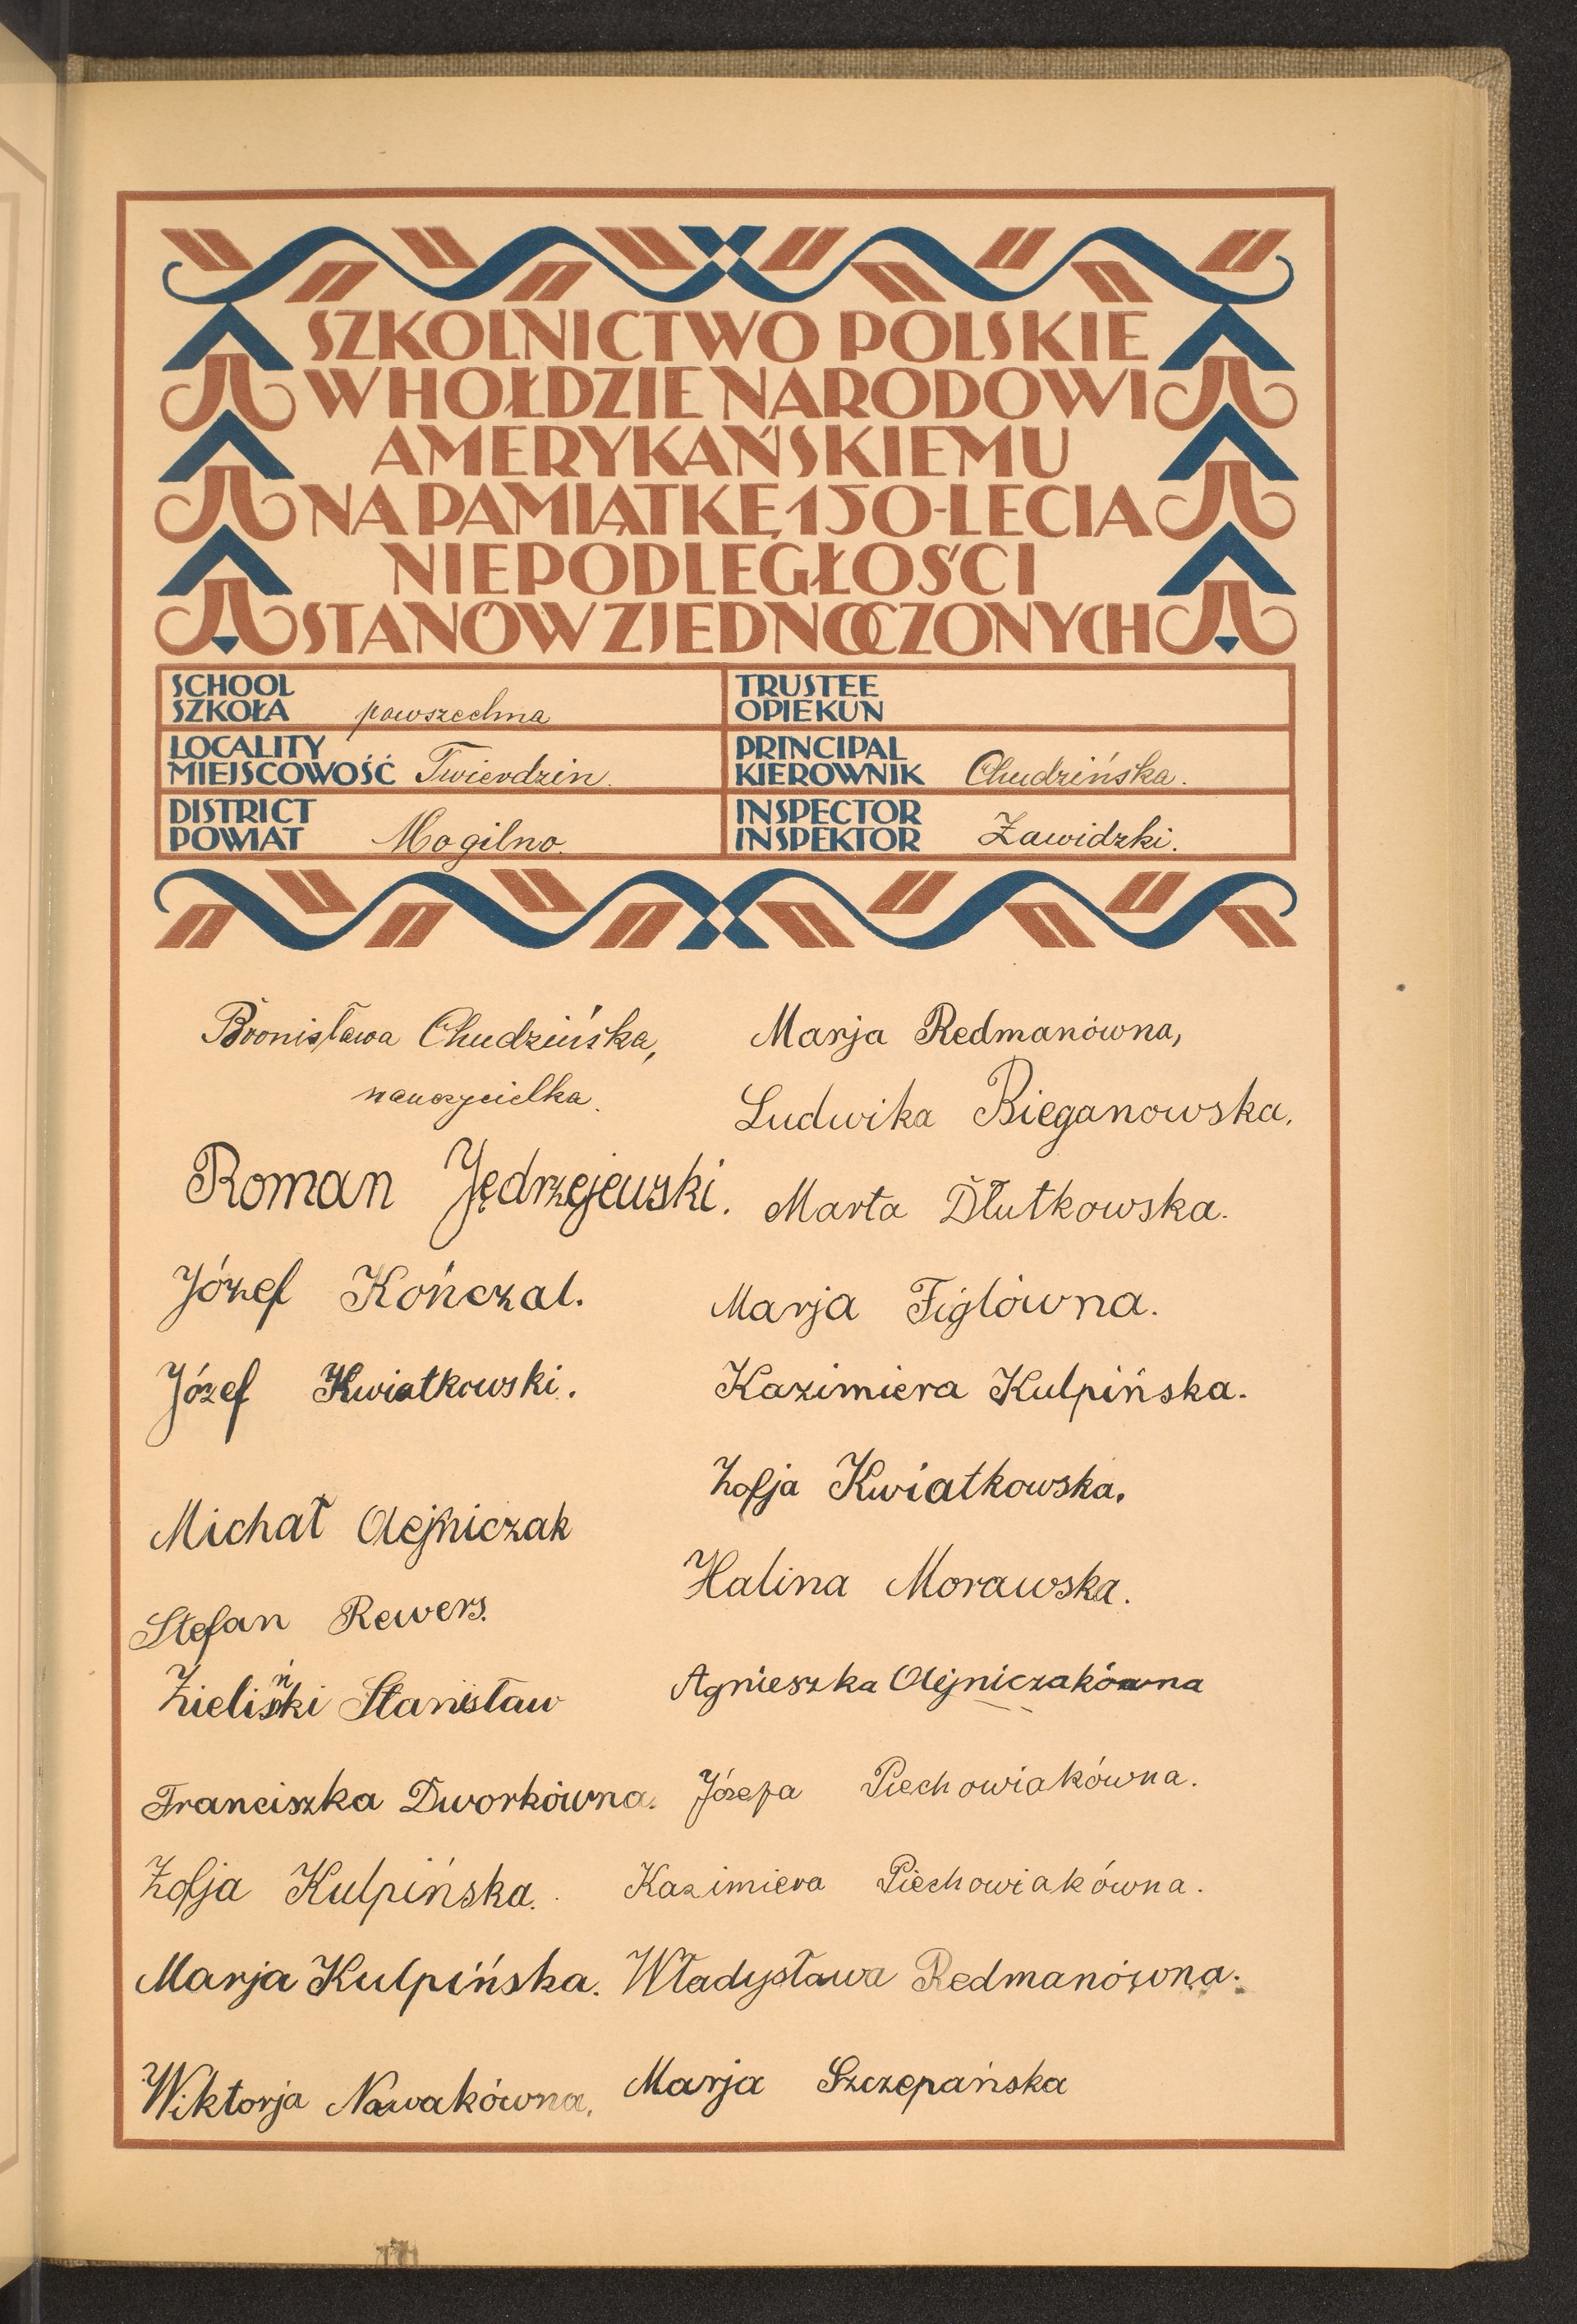 SZKOLNICTWO POLSKIE
W HOŁDZIE NARODOWI
AMERYKAŃSKIEMU
NA PAMIĄTKĘ 150-LECIA
NIEPODLEGŁOŚCI
STANÓW ZJEDNOCZONYCH
SCHOOL
SZKOŁA powszechna
LOCALITY
MIEJSCOWOŚĆ Twierdzin.
DISTRICT
POWIAT Mogilno.
TRUSTEE
OPIEKUN
PRINCIPAL
KIEROWNIK Chudzińska.
INSPECTOR
INSPEKTOR Zawidzki.
Bronisława Chudzińska,
nauczycielka.
Roman Jędrzejewski.
Józef Kończal.
Józef Kwiatkowski.
Michał Olejniczak
Stefan Rewers.
Zieliński Stanisław
Franciszka Dworkówna.
Zofja Kulpińska.
Marja Kulpińska.
Wiktorja Nowakówna.
Marja Redmanówna,
Ludwika Bieganowska.
Marta Dłutkowska.
Marja Figlówna.
Kazimiera Kulpińska.
Zofja Kwiatkowska.
Halina Morawska.
Agnieszka Olejniczakówna
Józefa Piechowiakówna.
Kazimiera Piechowiakówna.
Władysława Redmanówna.
Marja Szczepańska